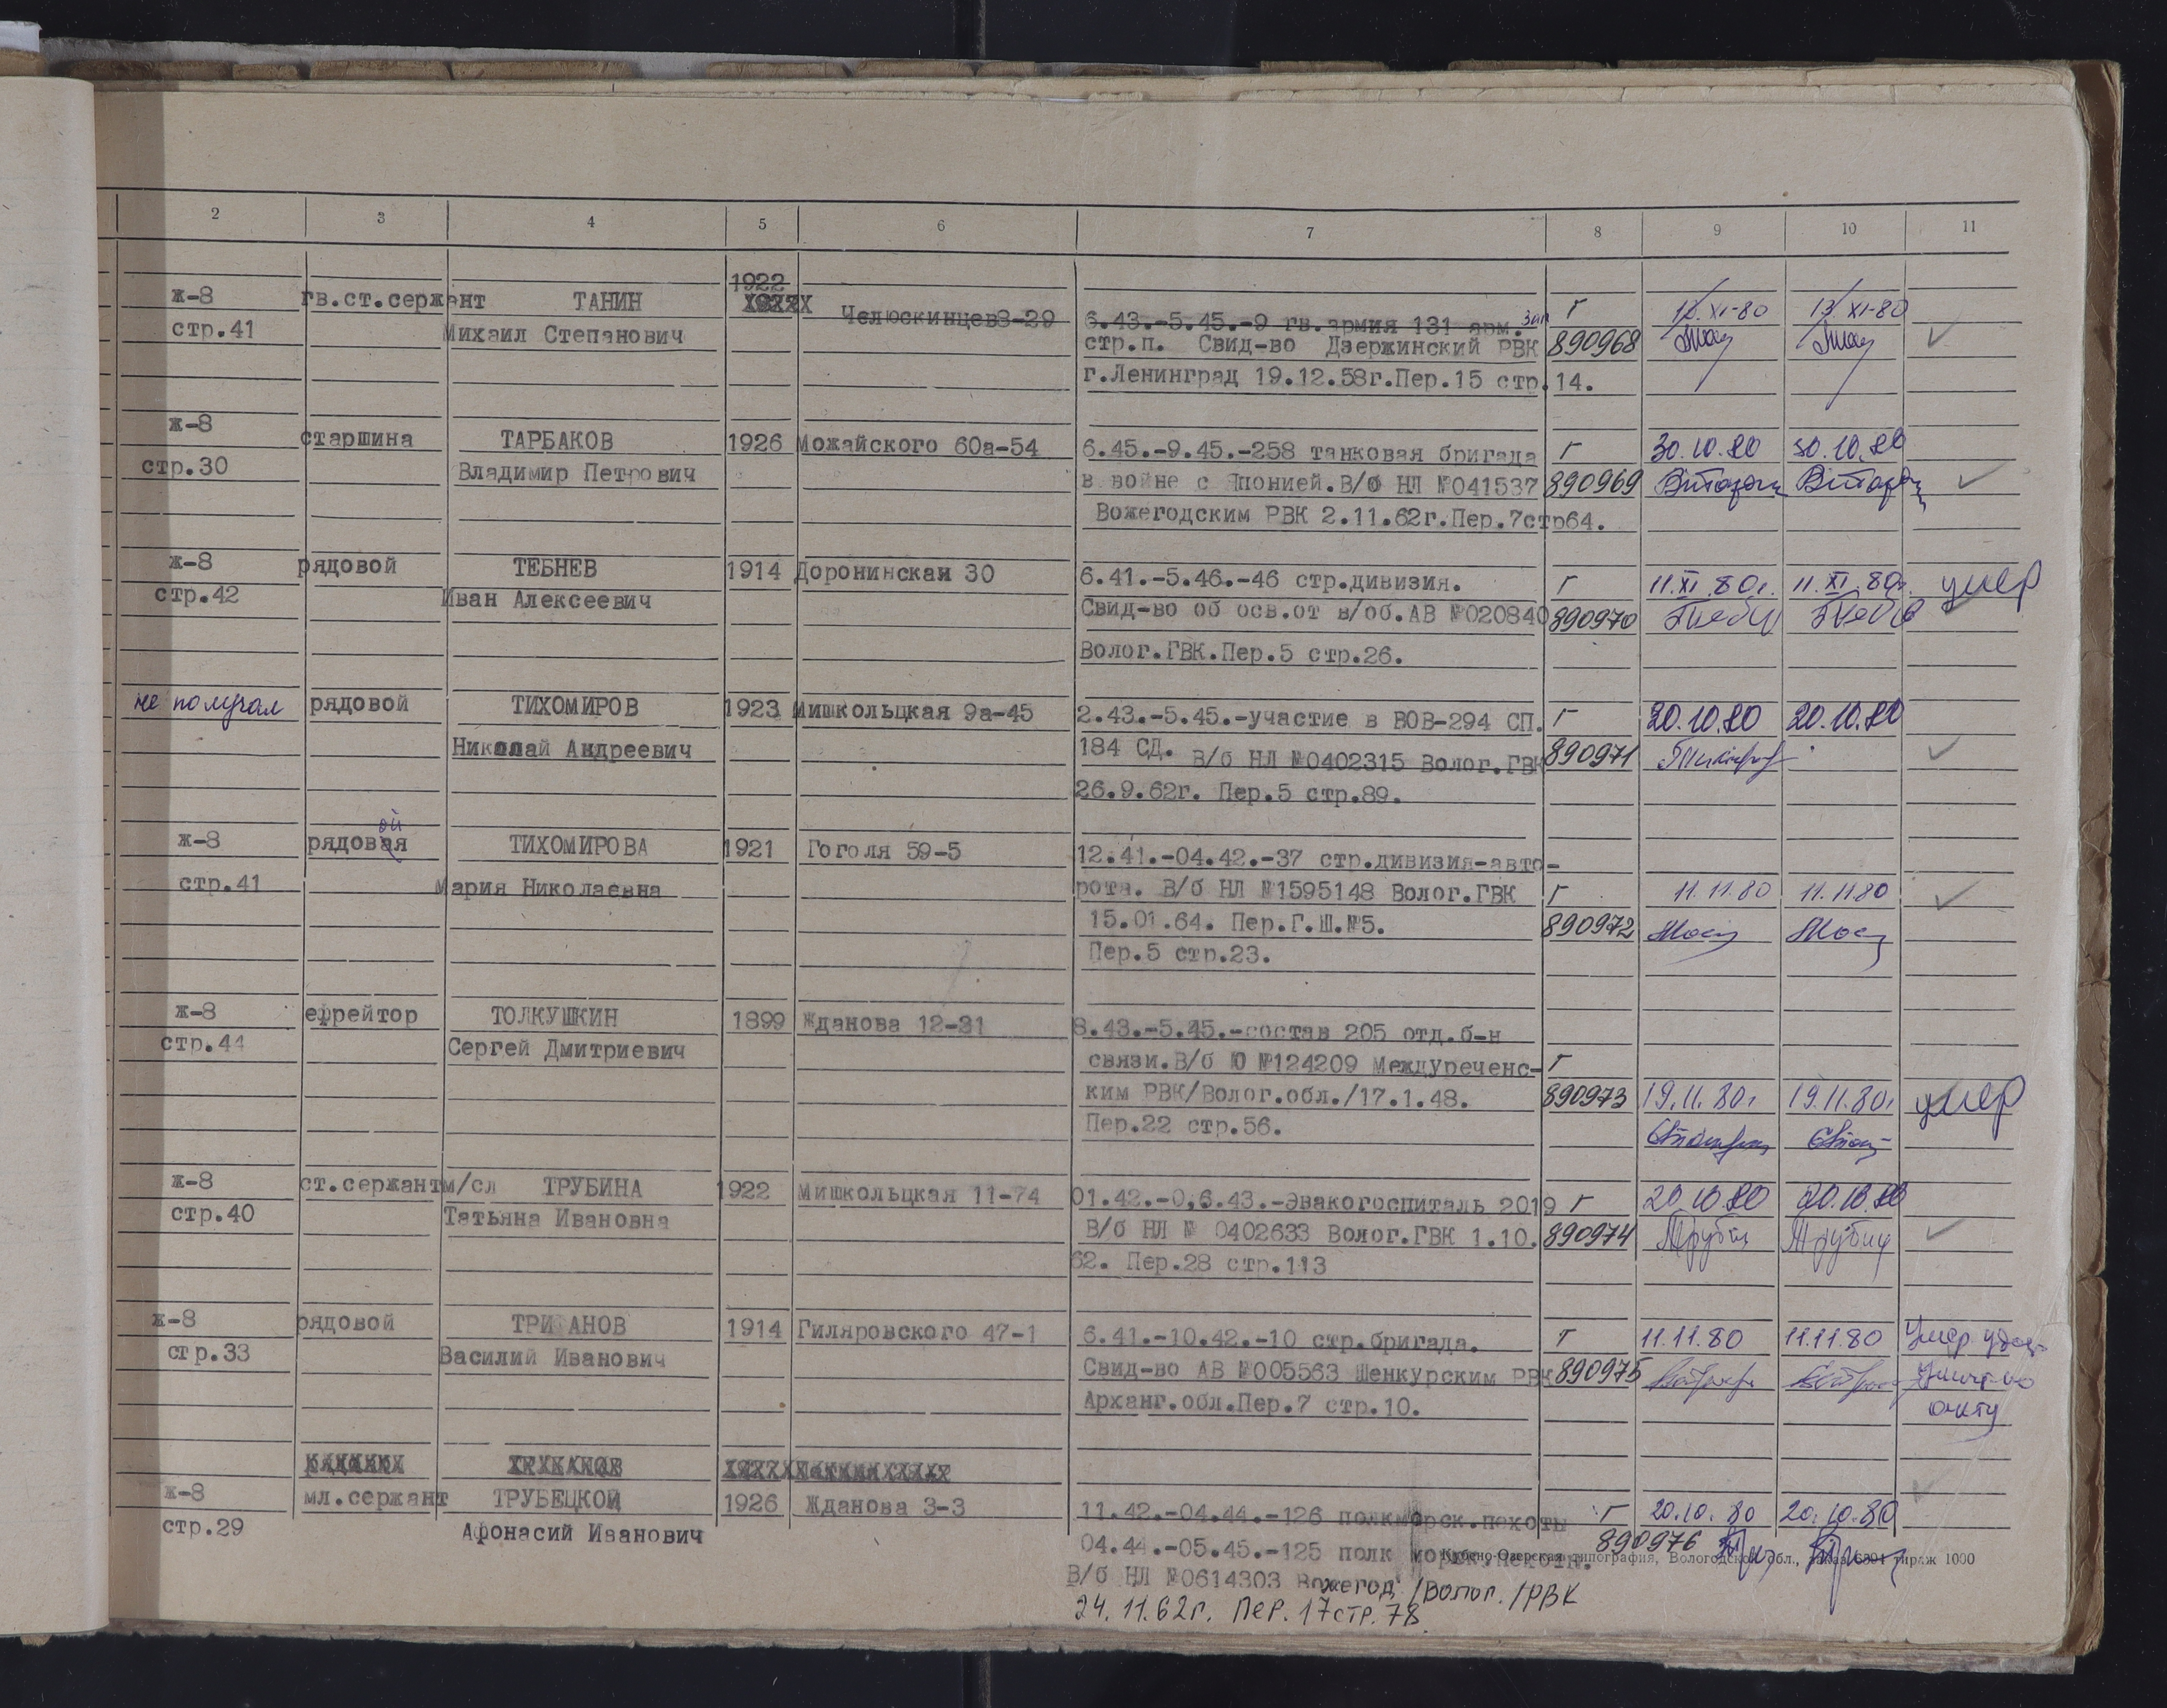 2 3 4 5 6 7 8 9 10 11
1922
ж-8 гв.ст.сержант ТАНИН Челюскинцев3-29 6.43.-5.45.-9 гв.армия 131 арм.зап Г 12/XI-80 13/XI-80
стр.41 Михаил Степанович стр.п. Свид-во Дзержинский РВК 890968
г.Ленинград 19.12.58г.Пер.15 стр.14.
ж-8 старшина ТАРБАКОВ 1926 Можайского 60а-54 6.45.-9.45.-258 танковая бригада Г 30.10.80 30.10.80
стр.30 Владимир Петрович в войне с Японией.В/б НЛ №041537 890969
Вожегодским РВК 2.11.62г.Пер.7стр64.
ж-8 рядовой ТЕБНЕВ 1914 Доронинская 30 6.41.-5.46.-46 стр.дивизия. Г 11.XI.80г. 11.XI.80г. умер
стр.42 Иван Алексеевич Свид-во об осв.от в/об.АВ №020840 890970
Волог.ГВК.Пер.5 стр.26.
не получал рядовой ТИХОМИРОВ 1923 Мишкольцкая 9а-45 2.43.-5.45.-участие в ВОВ-294 СП. Г 20.10.80 20.10.80
Николай Андреевич 184 СД. В/б НЛ №0402315 Волог.ГВК 890971
26.9.62г. Пер.5 стр.89.
ой
ж-8 рядовая ТИХОМИРОВА 1921 Гоголя 59-5 12.41.-04.42.-37 стр.дивизия-авто-
стр.41 Мария Николаевна рота. В/б НЛ №1595148 Волог.ГВК Г 11.11.80 11.11.80
15.01.64. Пер.Г.Ш.№5. 890972
Пер.5 стр.23.
ж-8 ефрейтор ТОЛКУШКИН 1899 Жданова 12-31 8.43.-5.45.-состав 205 отд.б-н
стр.44 Сергей Дмитриевич связи.В/б Ю №124209 Междуреченс- Г
ким РВК/Волог.обл./17.1.48. 890973 19.11.80г 19.11.80г умер
Пер.22 стр.56.
ж-8 ст.сержантм/сл ТРУБИНА 1922 Мишкольцкая 11-74 01.42.-0,6.43.-Эвакогоспиталь 2019 Г 20.10.80 20.10.80
стр.40 Татьяна Ивановна В/б НЛ № 0402633 Волог.ГВК 1.10. 890974
62. Пер.28 стр.113
ж-8 рядовой ТРИФАНОВ 1914 Гиляровского 47-1 6.41.-10.42.-10 стр.бригада. Г 11.11.80 11.11.80 Умер
стр.33 Василий Иванович Свид-во АВ №005563 Шенкурским РВК 890975
Арханг.обл.Пер.7 стр.10. акту
ж-8 мл.сержант ТРУБЕЦКОЙ 1926 Жданова 3-3 11.42.-04.44.-126 полкморск.пехоты Г 20.10.80 20.10.80
стр.29 Афонасий Иванович 04.44.-05.45.-125 полк морск.пехоты. 890976
Кубено-Озерская типография, Вологодской обл., заказ 6394 тираж 1000
В/б НЛ №0614303 Вожегод /Волог./РВК
24.11.62г. Пер.17стр.78.